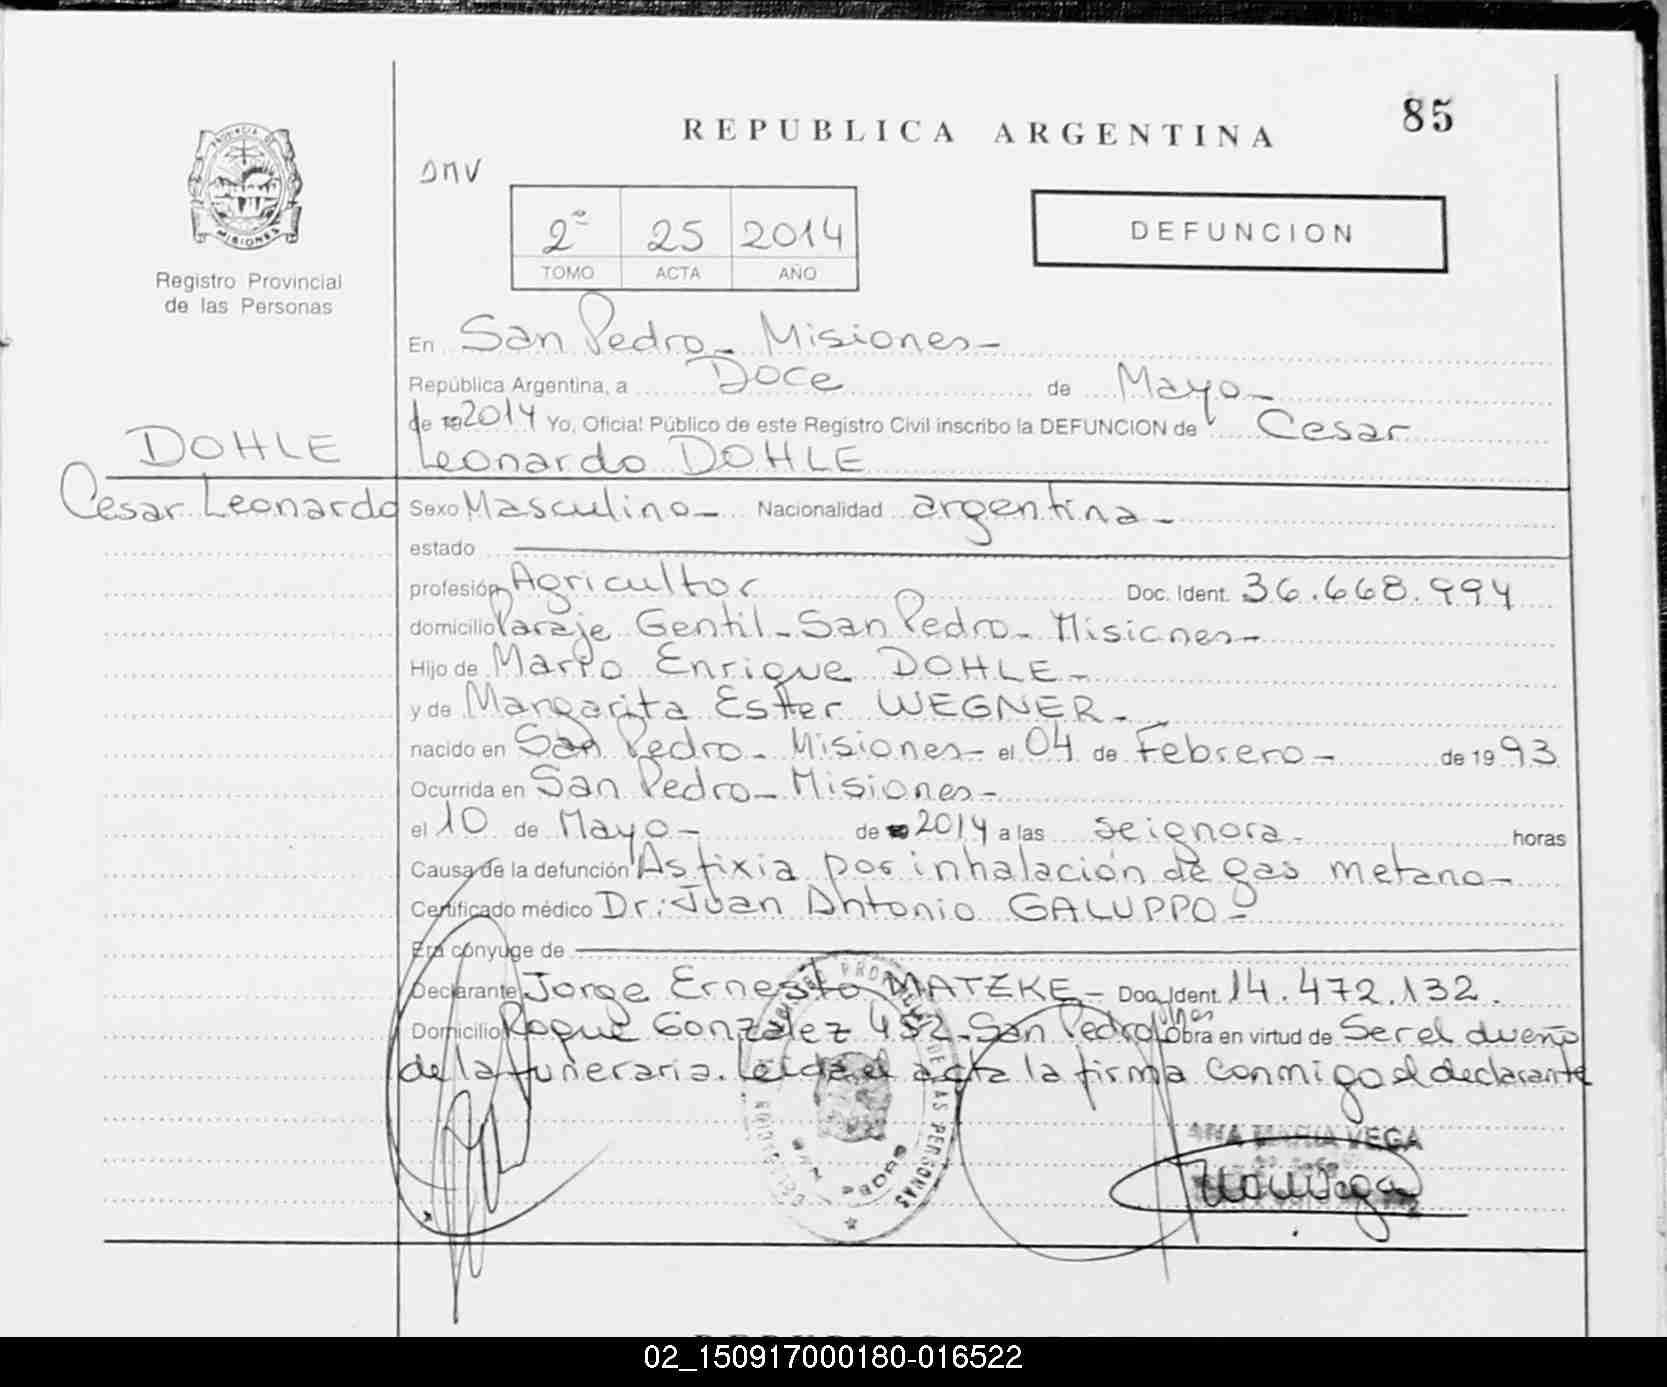 85
REPUBLICA ARGENTINA
DMV
PROVINCIA DE
MISIONES
Registro Provincial
de las Personas
2º 25 2014
TOMO ACTA AÑO
DEFUNCION
En San Pedro - Misiones -
República Argentina, a Doce de Mayo -
de 19 2014 Yo, Oficial Público de este Registro Civil inscribo la DEFUNCION de Cesar
Leonardo DOHLE
DOHLE
Cesar Leonardo
Sexo Masculino - Nacionalidad argentina -
estado
profesión Agricultor Doc. Ident. 36.668.994
domicilio Paraje Gentil - San Pedro - Misiones -
Hijo de Mario Enrique DOHLE -
y de Margarita Ester WEGNER -
nacido en San Pedro - Misiones - el 04 de Febrero - de 19 93
Ocurrida en San Pedro - Misiones -
el 10 de Mayo - de 2014 a las se ignora - horas
Causa de la defunción Asfixia por inhalación de gas metano -
Certificado médico Dr: Juan Antonio GALUPPO -
Era cónyuge de
Declarante Jorge Ernesto MATZKE - Doc. Ident. 14.472.132.
Domicilio Roque Gonzalez 452 - San Pedro Mnes Obra en virtud de Ser el dueño
de la funeraria. Leida el acta la firma conmigo el declarante
DE LAS PERSONAS
SAN PEDRO
ANA MARIA VEGA
02_150917000180-016522